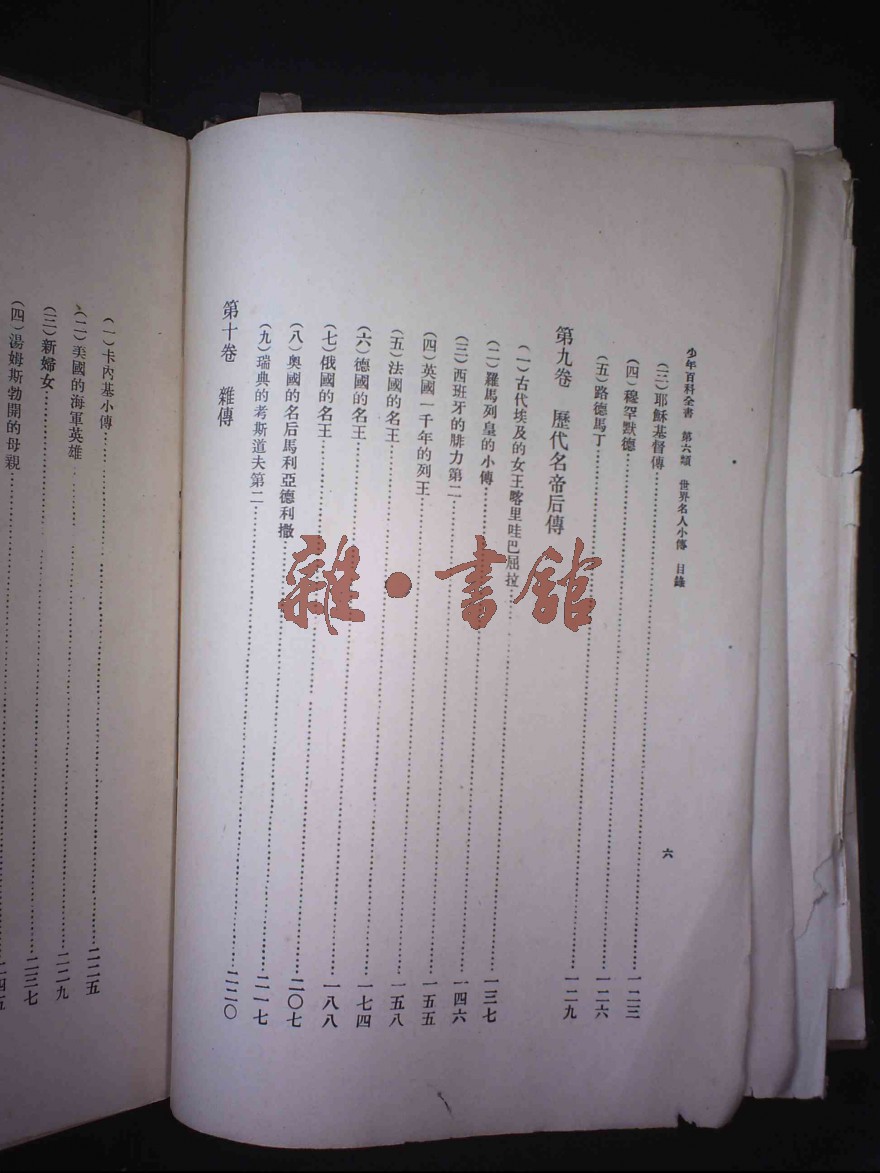 少年百科全書 第六類 世界名人小傳 目錄 六
(三)耶穌基督傳……一二三
(四)穆罕默德……一二六
(五)路德馬丁……一二九
第九卷 歷代名帝后傳
(一)古代埃及的女王喀里哇巴屈拉……一三七
(二)羅馬列皇的小傳……一四六
(三)西班牙的腓力第二……一五五
(四)英國一千年的列王……一五八
(五)法國的名王……一七四
(六)德國的名王……一八八
(七)俄國的名王……二〇七
(八)奧國的名后馬利亞德利撒……二一七
(九)瑞典的考斯道夫第二……二二〇
第十卷 雜傳
(一)卡內基小傳……二二五
(二)美國的海軍英雄……二二九
(三)新婦女……二三七
(四)湯姆斯勃開的母親……
雜·書館